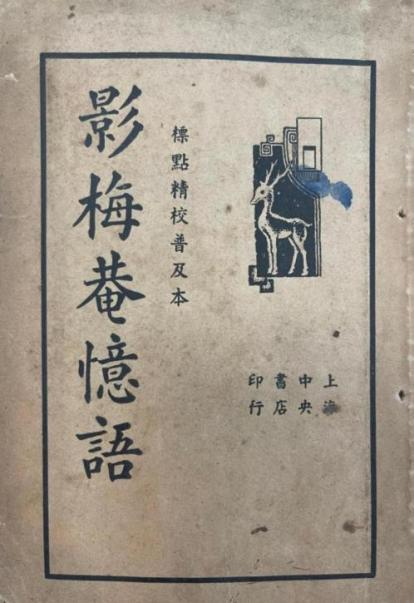 影梅菴憶語
標點精校普及本
上海
中央
書店
印行